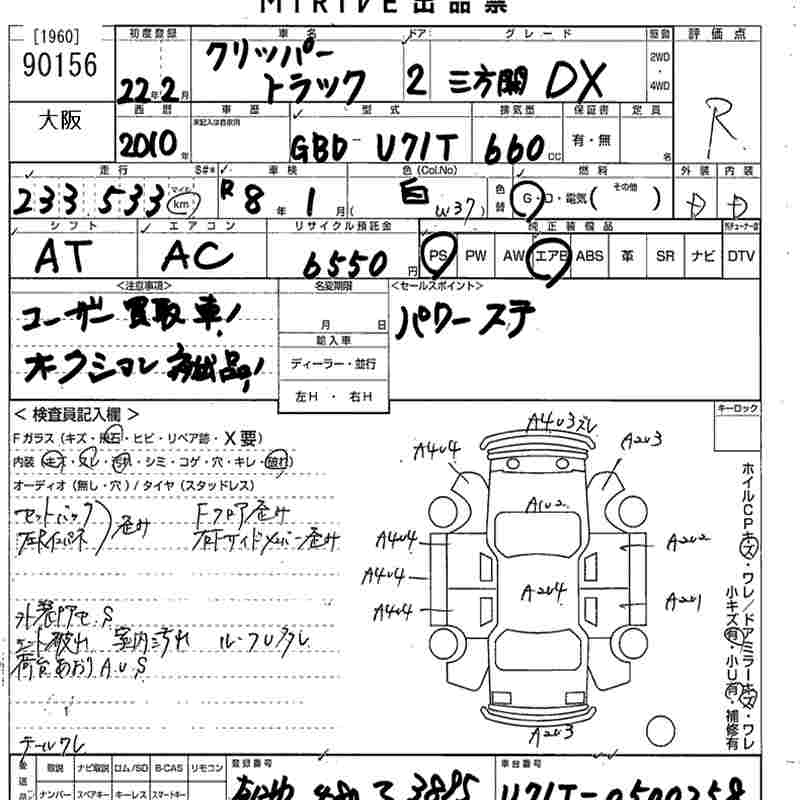 MIRIVE 出品票
[1960]
90156
大阪
初度登録 車名 ドア グレード 駆動 評価点
22年2月 クリッパートラック 2 三方開 DX 2WD・4WD R
西暦 車歴 型式 排気量 保証書 定員
未記入は自家用
2010年 GBD-U71T 660cc 有・無 名
走行 S#* 車検 色(Col.No) 燃料 外装 内装
233,533 マイル km R8年1月 白 (W37) 色替 G・D・電気( その他 ) D D
シフト エアコン リサイクル預託金 純正装備品
AT AC 6550円 PS PW AW エアB ABS 革 SR ナビ DTV
<注意事項> 名変期限 <セールスポイント>
ユーザー買取車!
月 日
パワーステ
輸入車
ディーラー・並行
左H・右H
<検査員記入欄> キーロック
Fガラス(キズ・飛石・ヒビ・リペア跡・X要)
内装(・・汚れ・シミ・コゲ・穴・キレ・)
オーディオ(無し・穴)/タイヤ(スタッドレス)
セットバック 歪み Fフロア歪み
歪み
S
破れ 室内汚れ
荷台あおりAUS
テールワレ
A4U3ズレ
A4U4 A2U3
A1U2
A4U4 A2U2
A4U4 A2U4
A4U4 A2U1
A2U3
ホイルCPキズ・ワレ/ドアミラーキズ・ワレ
小キズ有・小U有・補修有
後送品 取説 ナビ取説 ロム/SD B-CAS リモコン 登録番号 車台番号
ナンバー スペアキー キーレス スマートキー 480 て 3885 U71T-0500258